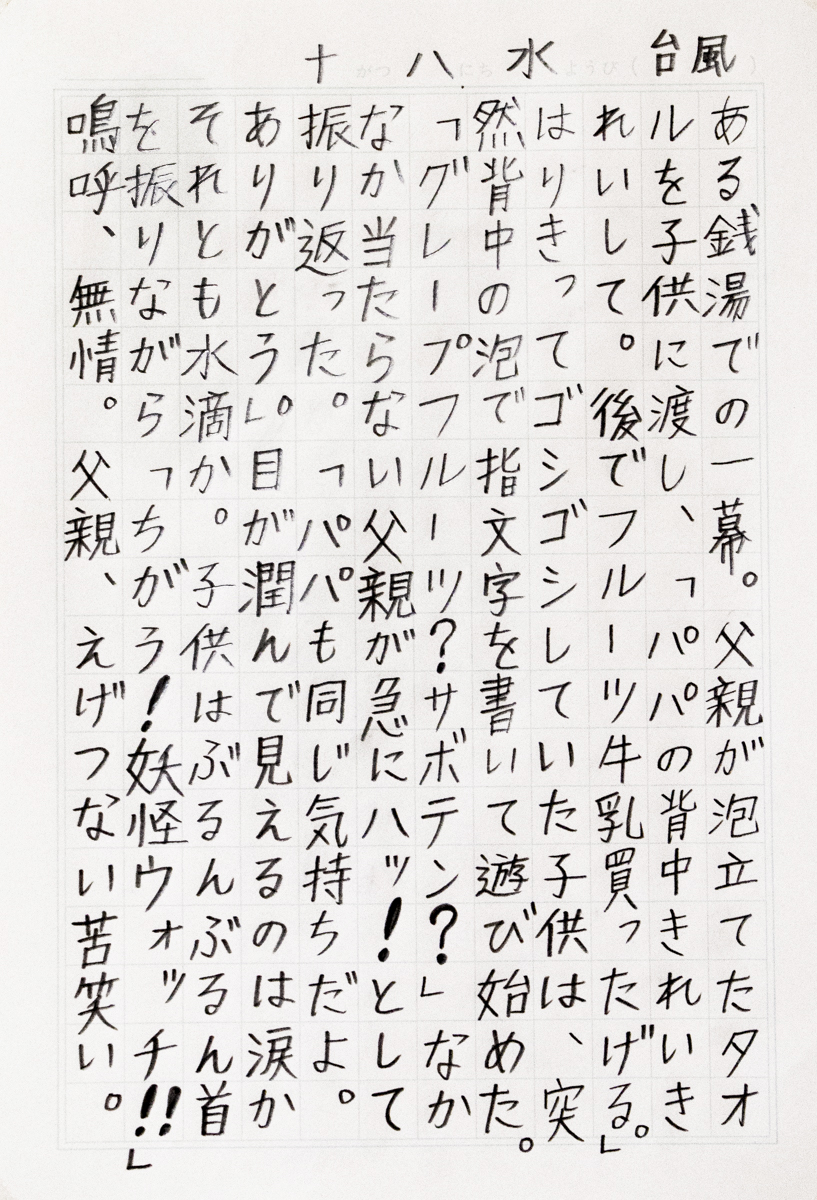 十 八 水 台風
ある銭湯での一幕。父親が泡立てたタオ
ルを子供に渡し、「パパの背中きれいき
れいして。後でフルーツ牛乳買ったげる。」
はりきってゴシゴシしていた子供は、突
然背中の泡で指文字を書いて遊び始めた。
「グレープフルーツ?サボテン?」なか
なか当たらない父親が急にハッ!として
振り返った。「パパも同じ気持ちだよ。
ありがとう。」目が潤んで見えるのは涙か
それとも水滴か。子供はぶるんぶるん首
を振りながら「ちがう!妖怪ウォッチ!!」
鳴呼、無情。父親、えげつない苦笑い。